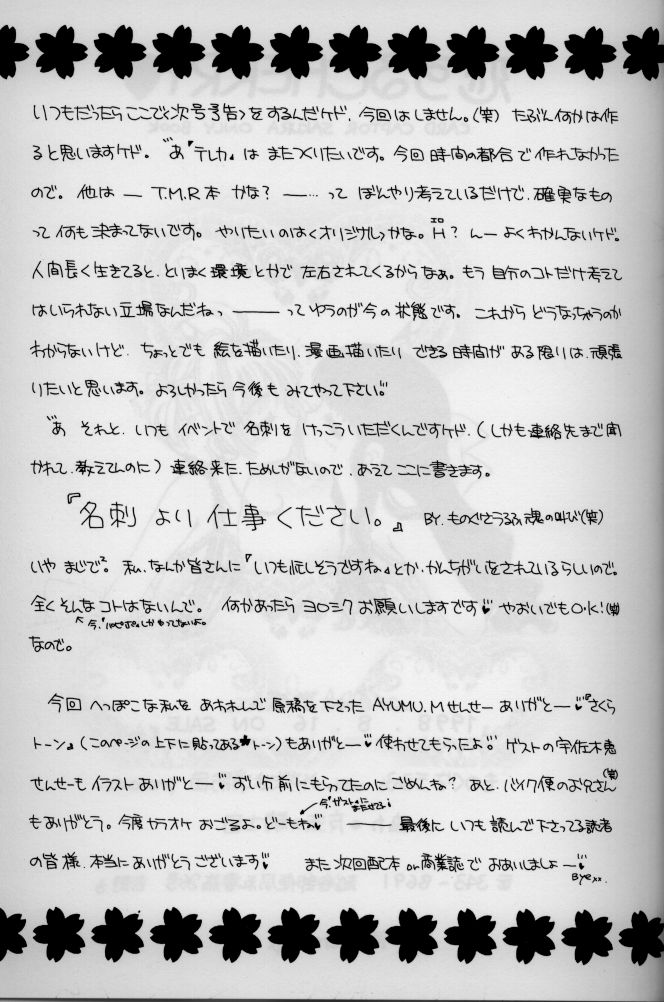 いつもだったらここで<次号予告>をするんだケド、今回はしません。(笑) たぶん何かは作
ると思いますケド。 あ『テレカ』は またつくりたいです。今回 時間の都合で作れなかった
ので。他は ― T.M.R本 かな? ―…って ぼんやり考えているだけで、確実なもの
って何も決まってないです。 やりたいのは<オリジナル>かな。H? んー よくわかんないケド。
エロ
人間長く生きてると、とにかく環境とかで 左右されてくるからなぁ。もう 自分のコトだけ考えて
はいられない立場なんだねっ ――― ってゆうのが今の 状態です。 これから どうなっちゃうのか
わからないけど、ちょっとでも 絵を描いたり、漫画描いたり できる時間が ある限りは、頑張
りたいと思います。よろしかったら 今後も みてやって下さい。
あ それと、いつも イベントで 名刺を けっこういただくんですケド、(しかも連絡先まで聞
かれて、教えてんのに) 連絡来た、ためしがないので、あえて ここに書きます。
『名刺 より 仕事ください。』 BY. ものぐさうるふ 魂の叫び(笑)
いや まじで。私、なんか皆さんに『いつも忙しそうですね』とか、かんちがいをされているらしいので。
全くそんなコトはないんで。 何かあったら ヨロシク お願いしますです♥ やおいでもO・K!(笑)
なので。
今回 へっぽこな私を あわれんで 原稿を下さった AYUMU.Mせんせー ありがと―♥『さくら
トーン』(このページの上下に貼ってあるトーン)もありがと―♥ 使わせてもらったよ! ゲストの宇佐木恵
せんせーも イラスト ありがと―♥ おい分前にもらってたのに ごめんね? あと、バイク便のお兄さん(笑)
もありがとう。今度 カラオケ おごるよ。ど―もね♥ ――― 最後に いつも 読んで下さってる読者
の皆様、本当に ありがとう ございます♥ また 次回配本 or 商業誌で おあいしましょ―♥
Bye xx.